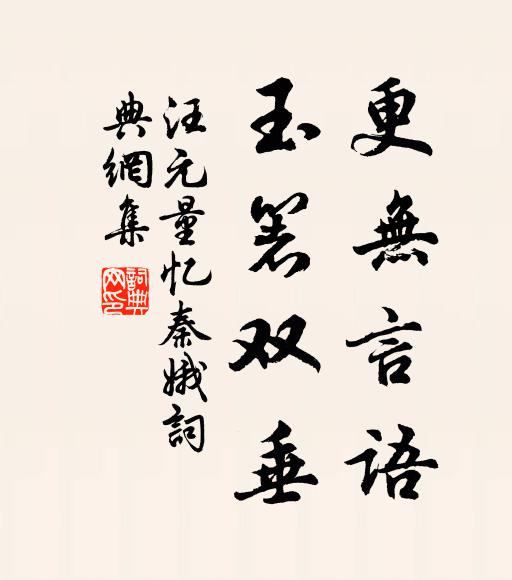 更無言語
玉箸双垂
汪元量忆秦娥詞
典網集
詞典
网印